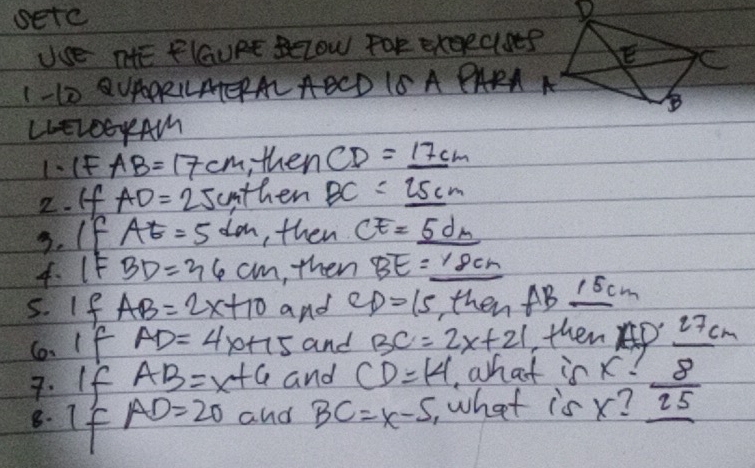 SETC
USE THE FIGURE BELOW FOR EXERCISES
1-10 QUADRILATERAL ABCD IS A PARA
LLELOGRAM
D
E
C
A
B
1. IF AB=17cm, then CD = 17cm
2. If AD=25cm, then BC = 25cm
3. If AE=5dm, then CE= 5dm
4. IF BD=36 cm, then BE= 18cm
5. If AB=2x+10 and CD=15, then AB 15cm
6. If AD=4x+15 and BC=2x+21, then AD 27cm
7. If AB=x+6 and CD=14, what is x? 8
8. If AD=20 and BC=x-5, what is x? 25